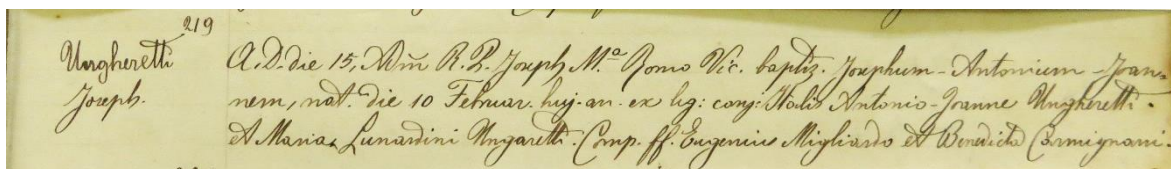 219
Ungheretti
Joseph.
A. D. die 15, Adm R. P. Joseph M.ª Romo Vic. baptiz. Josephum - Antonium - Joan-
nem, nat. die 10 Februar. huj. an. ex leg: conj: Italis Antonio-Joanne Ungheretti.
et Maria Lunardini Ungaretti. Comp. ff. Eugenius Migliardo et Benedicta Carmignani.